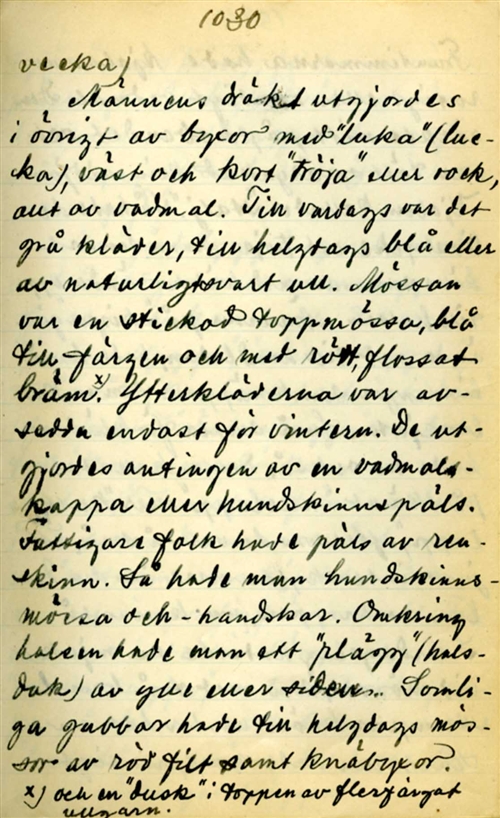 1030
vecka)
Männens dräkt utgjordes
i övrigt av byxor med "luka" (luc-
ka), väst och kort "tröja" eller rock,
allt av vadmal. Till vardags var det
grå kläder, till helgdags blå eller
av naturligtsvart ull. Mössan
var en stickad toppmössa, blå
till färgen och med rött, flossat
bräm.x) Ytterkläderna var av-
sedda endast för vintern. De ut-
gjordes antingen av en vadmals-
kappa eller hundskinnspäls.
Fattigare folk hade päls av ren-
skinn. Så hade man hundskinns-
mössa och -handskar. Omkring
halsen hade man ett "plagg" (hals-
duk) av ylle eller siden. Somli-
ga gubbar hade till helgdags mös-
sor av röd filt samt knäbyxor.
x) och en "dusk" i toppen av flerfärgat
ullgarn.